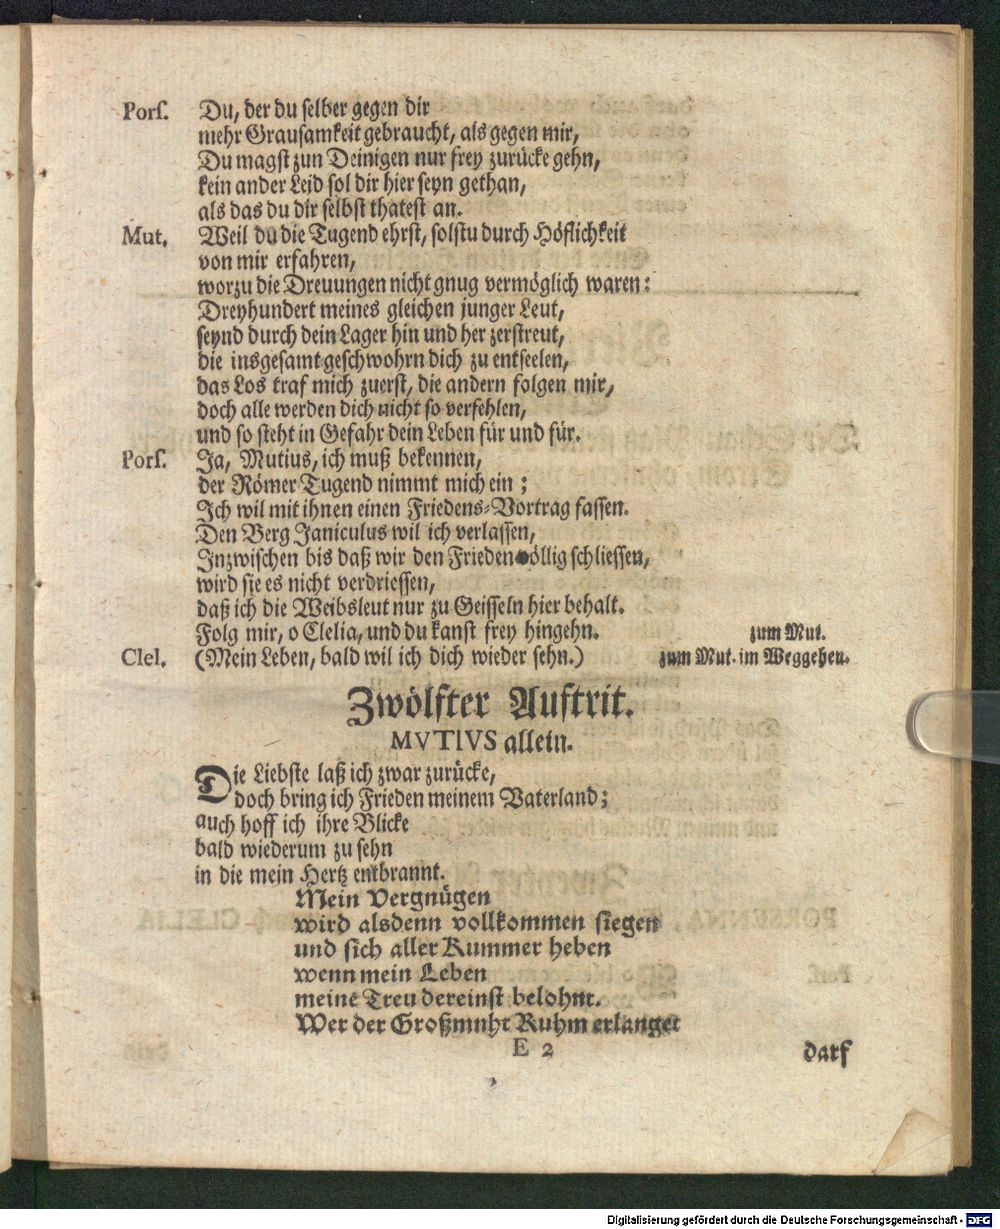 Porſ. Du, der du ſelber gegen dir
mehr Grauſamkeit gebraucht, als gegen mir,
Du magſt zun Deinigen nur frey zurücke gehn,
kein ander Leid ſol dir hier ſeyn gethan,
als das du dir ſelbſt thateſt an.
Mut. Weil du die Tugend ehrſt, ſolſtu durch Höflichkeit
von mir erfahren,
worzu die Dreuungen nicht gnug vermöglich waren:
Dreyhundert meines gleichen junger Leut,
ſeynd durch dein Lager hin und her zerſtreut,
die insgeſamt geſchwohrn dich zu entſeelen,
das Los traf mich zuerſt, die andern folgen mir,
doch alle werden dich nicht ſo verfehlen,
und ſo ſteht in Gefahr dein Leben für und für.
Porſ. Ja, Mutius, ich muß bekennen,
der Römer Tugend nimmt mich ein;
Ich wil mit ihnen einen Friedens-Vortrag faſſen.
Den Berg Janiculus wil ich verlaſſen,
Inzwiſchen bis daß wir den Frieden völlig ſchlieſſen,
wird ſie es nicht verdrieſſen,
daß ich die Weibsleut nur zu Geiſſeln hier behalt.
Folg mir, o Clelia, und du kanſt frey hingehn. zum Mut.
Clel. (Mein Leben, bald wil ich dich wieder ſehn.) zum Mut. im Weggehen.
Zwölfter Auftrit.
MVTIVS allein.
Die Liebſte laß ich zwar zurücke,
doch bring ich Frieden meinem Vaterland;
auch hoff ich ihre Blicke
bald wiederum zu ſehn
in die mein Hertz entbrannt.
Mein Vergnügen
wird alsdenn vollkommen ſiegen
und ſich aller Kummer heben
wenn mein Leben
meine Treu dereinſt belohnt.
Wer der Großmuht Ruhm erlanget
E 2 darf
Digitalisierung gefördert durch die Deutsche Forschungsgemeinschaft - DFG